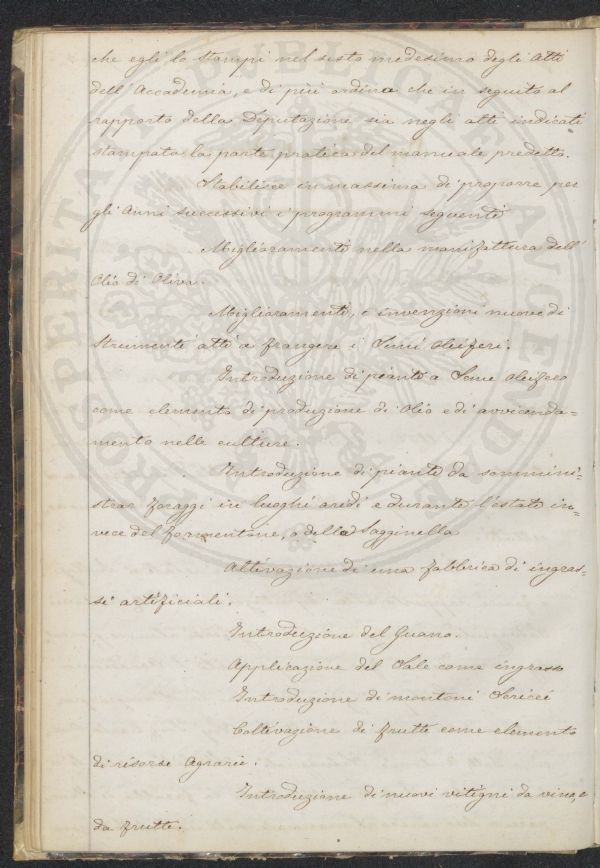 che egli lo stampi nel sesto medesimo degli Atti
dell'Accademia, e di più ordina che in seguito al
rapporto della Deputazione sia negli atti indicati
stampata la parte pratica del manuale predetto.
Stabilisce in massima di proporre per
gli Anni successivi i programmi seguenti
Miglioramenti nella manifattura dell'
Olio di Oliva.
Miglioramenti, e invenzioni nuove di
Strumenti atti a frangere i Semi oleiferi.
Introduzione di piante a Seme oleifero
come elemento di produzione di Olio e di avvicenda=
mento nelle culture.
Introduzione di piante da sommini=
strar foraggi in luoghi aridi e durante l'estate in=
vece del formentone, o della Sagginella
Attivazione di una fabbrica di ingras=
si artificiali.
Introduzione del Guano.
Applicazione del Sale come ingrasso
Introduzione di montoni Sericei
Coltivazione di frutte come elemento
di risorse Agrarie.
Introduzione di nuovi vitigni da vino, e
da frutte.
PROSPERITATI PUBLICAE AUGENDAE